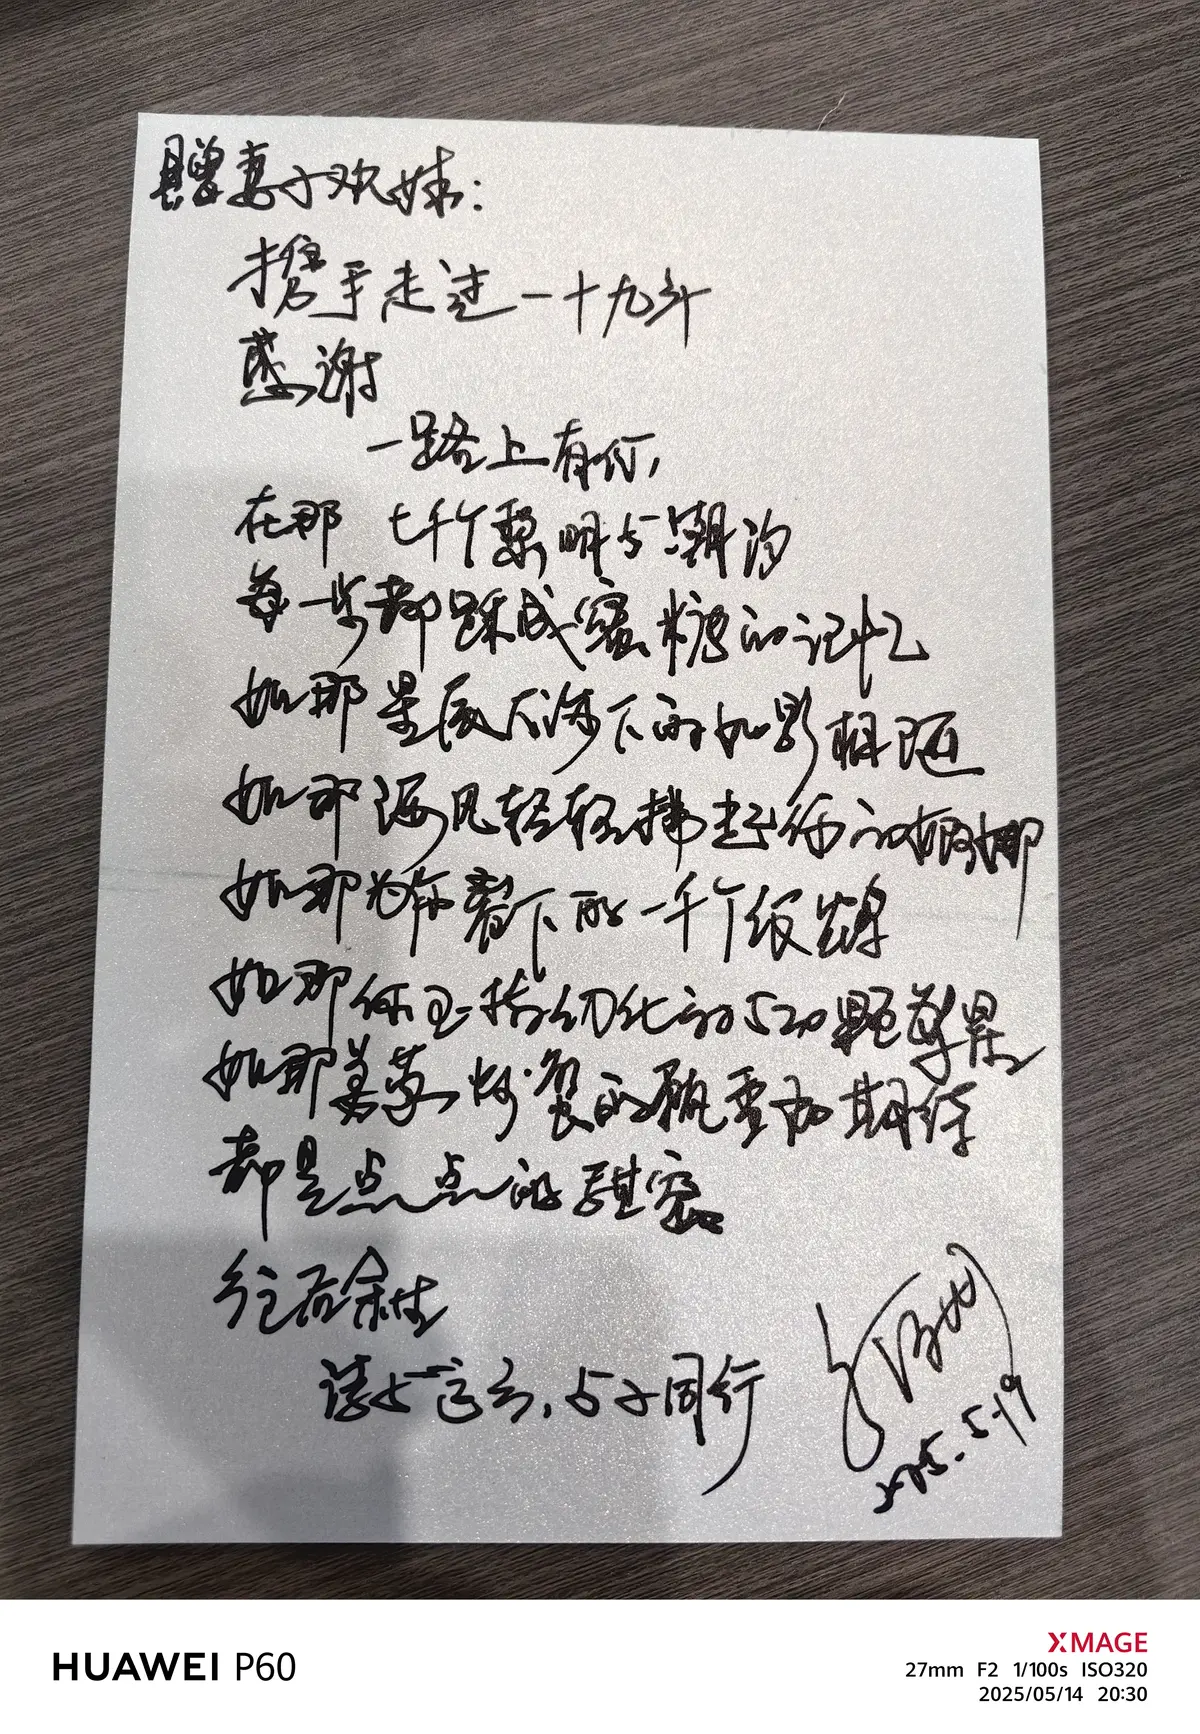 赠妻子欢妹：
携手走过一十九年
感谢
一路上有你，
在那 七千个黎明与潮汐
每一步都踩成蜜糖的记忆
如那星辰大海下的如影相随
如那海风轻轻拂起你的婀娜
如那为你著下的一千个纸
如那你玉指幻化的520颗
如那的期待
都是点点的甜蜜
往后余生
请与言，与子同行
2025.5.19
HUAWEI P60
XMAGE
27mm F2 1/100s ISO320
2025/05/14 20:30